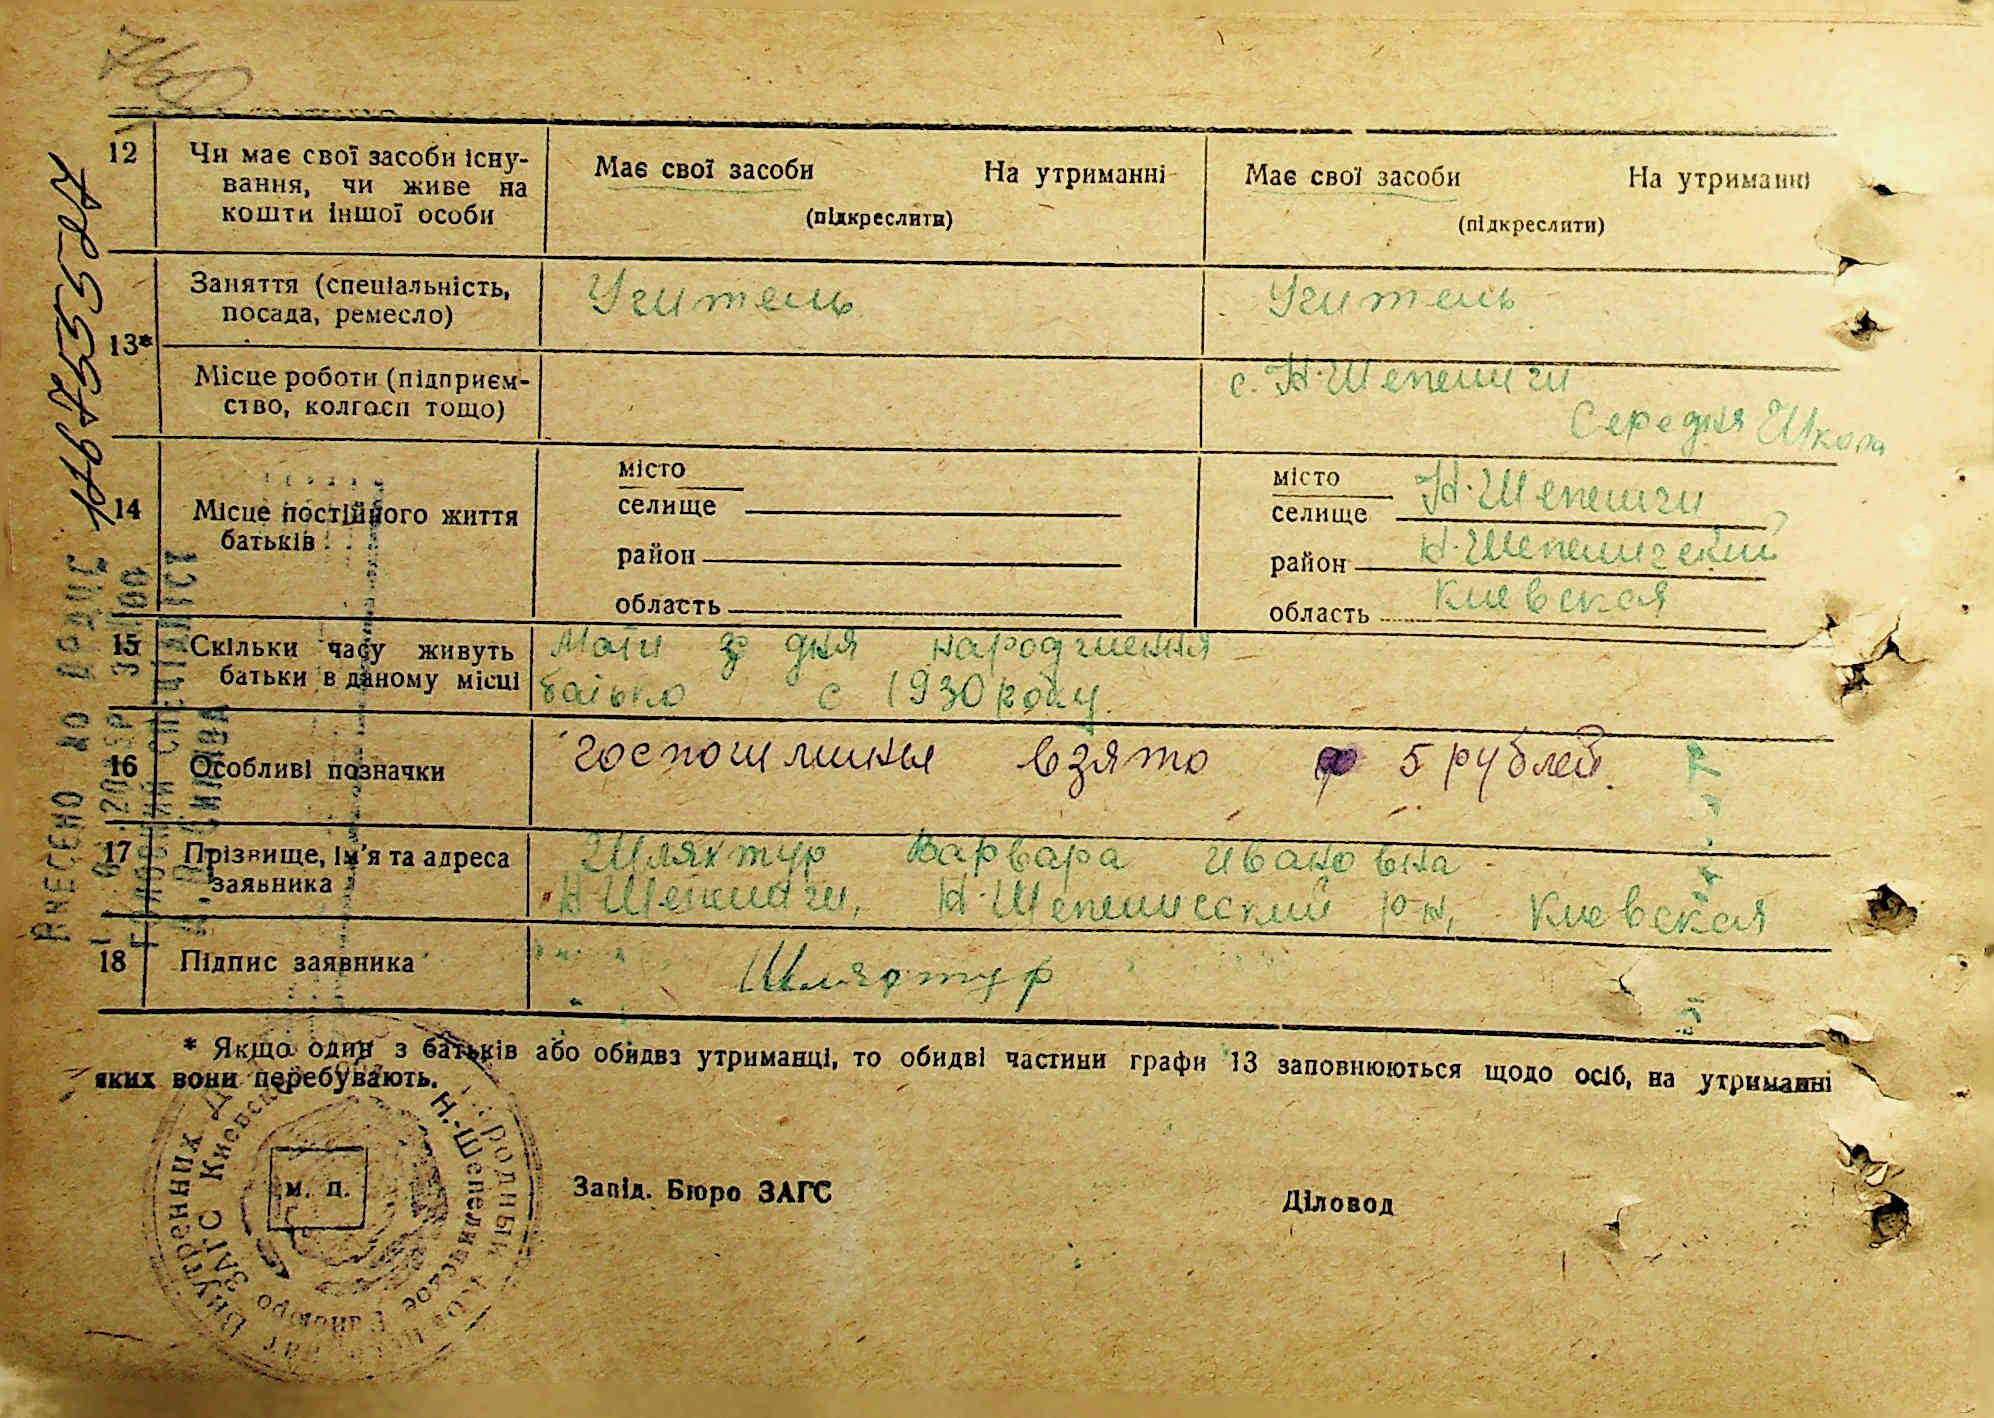 760
12 Чи має свої засоби існу-
вання, чи живе на
кошти іншої особи
Має свої засоби На утриманні
(підкреслити)
Має свої засоби На утриманні
(підкреслити)
13*
Заняття (спеціальність,
посада, ремесло)
Учитель
Учитель
Місце роботи (підприєм-
ство, колгосп тощо)
с. Н-Шепеличи
Середня Школа
14 Місце постійного життя
батьків
місто
селище
район
область
місто
селище Н-Шепеличи
район Н-Шепеличский
область Киевская
15 Скільки часу живуть
батьки в даному місці
Мати з дня народження
батько с 1930 року.
16 Особливі позначки
госпошлины взято 5 рублей.
17 Прізвище, ім'я та адреса
заявника
Шляхтур Варвара Ивановна
Н-Шепеличи, Н-Шепеличский р-н, Киевская
18 Підпис заявника
Шляхтур
* Якщо один з батьків або обидва утриманці, то обидві частини графи 13 заповнюються щодо осіб, на утриманні
яких вони перебувають.
м. п.
Завід. Бюро ЗАГС
Діловод
Внутренних
ЗАГС Киевск
Н-Шепеличское Райбюро
ВНЕСЕНО ДО ДРАЦС
ГОЛОВНИЙ СПЕЦІАЛІСТ